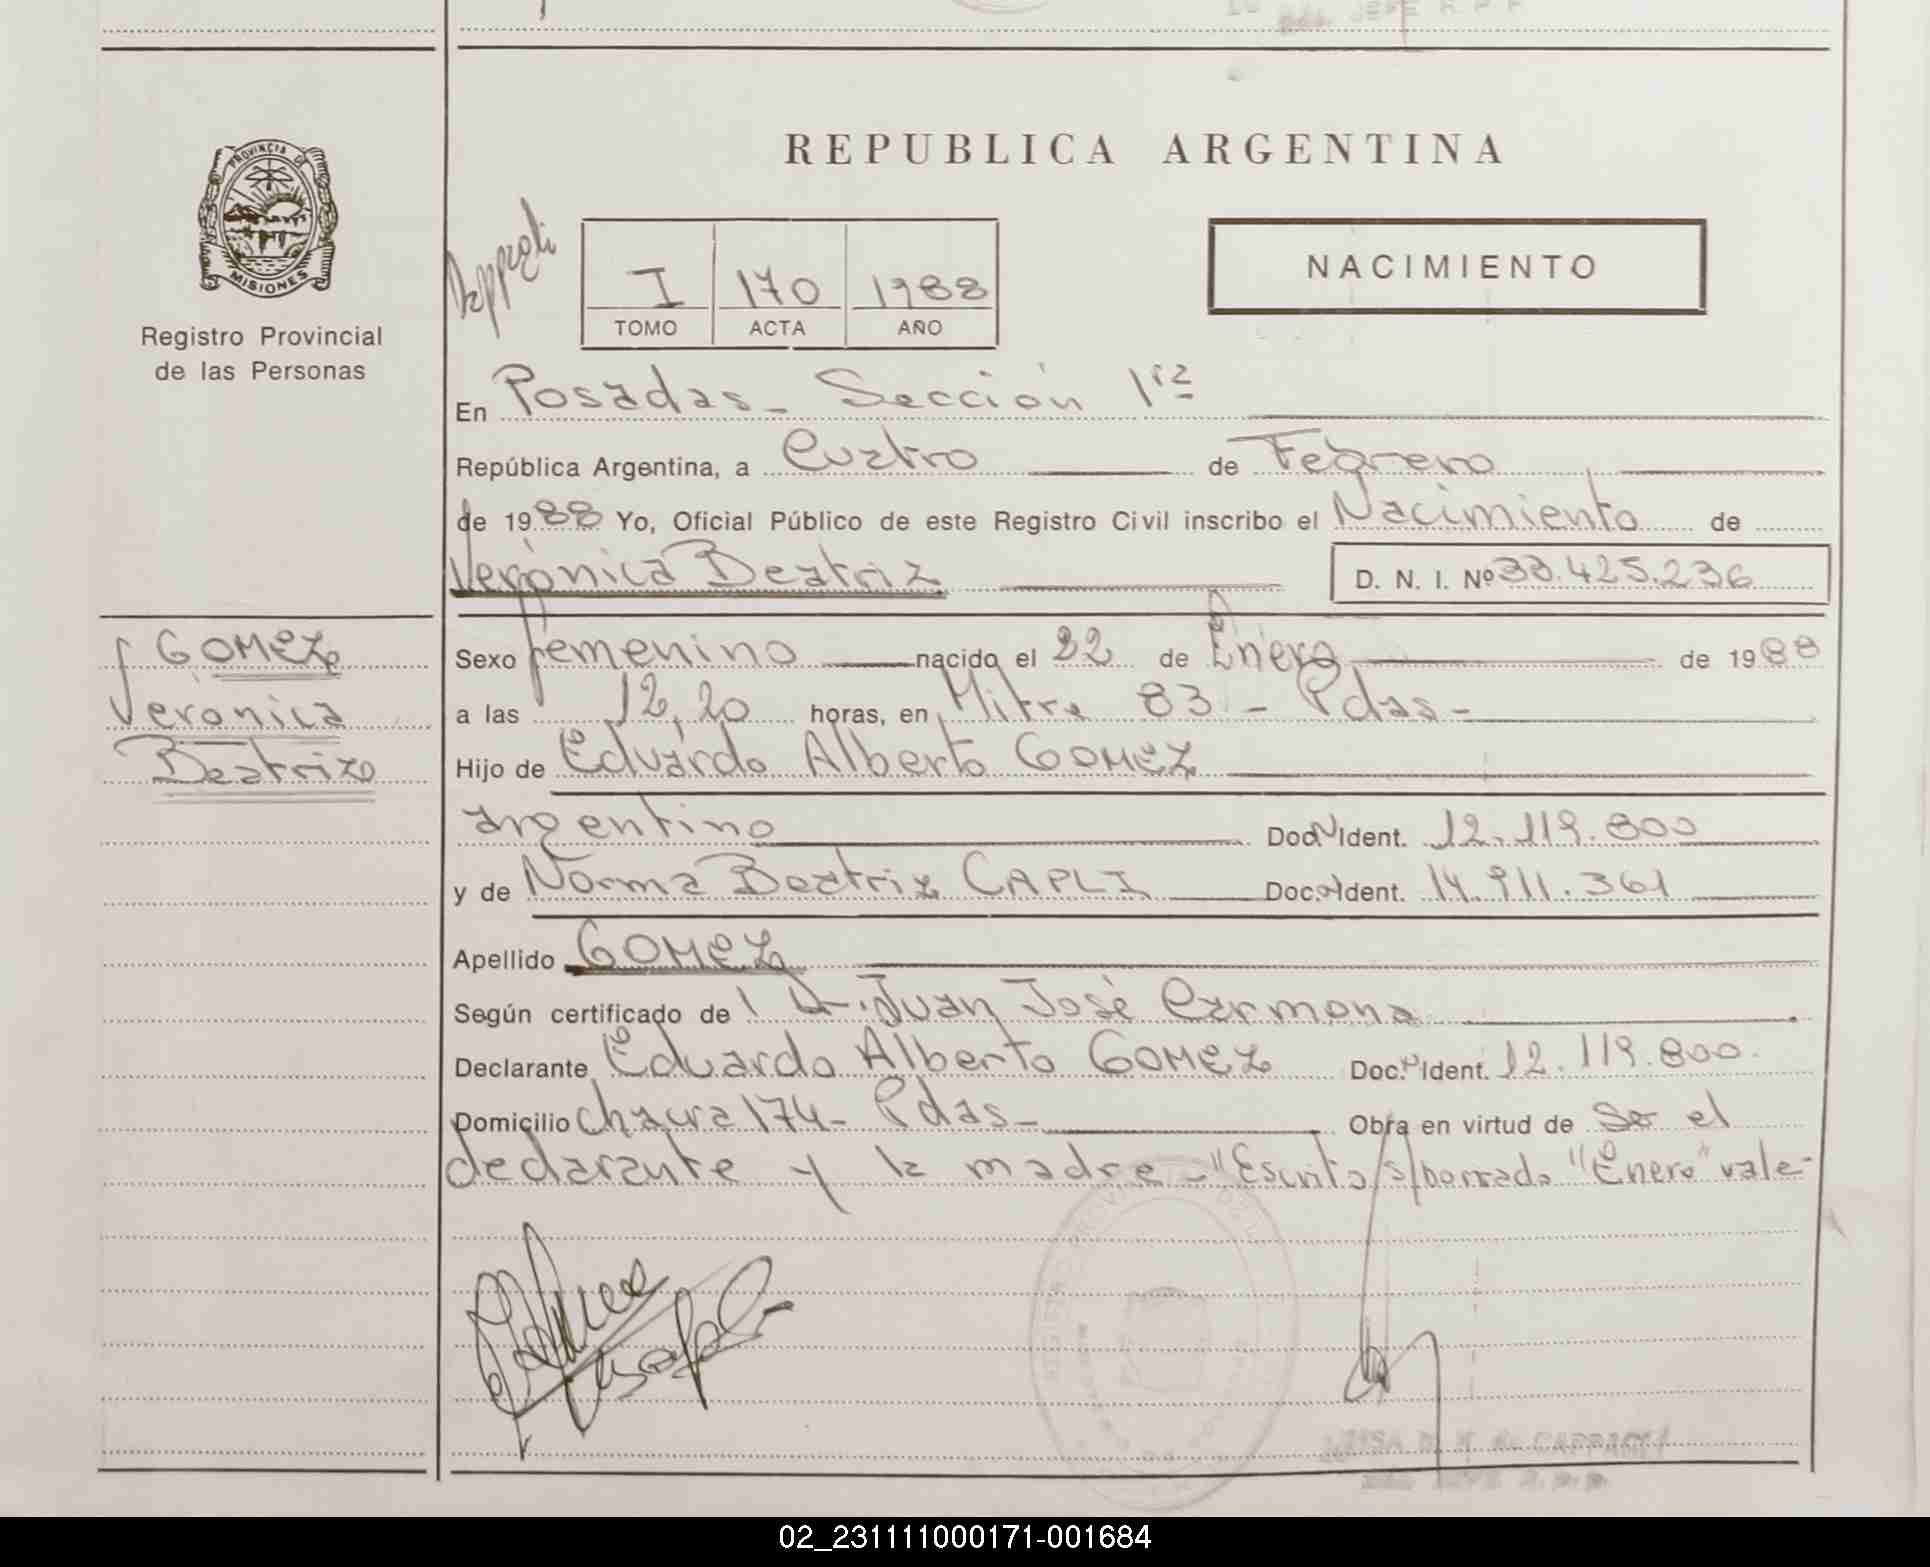 REPUBLICA ARGENTINA
PROVINCIA DE
MISIONES
Registro Provincial
de las Personas
I 170 1988
TOMO ACTA AÑO
NACIMIENTO
En Posadas - Sección 1ra
República Argentina, a Cuatro de Febrero
de 1988 Yo, Oficial Público de este Registro Civil inscribo el Nacimiento de
Verónica Beatriz D. N. I. Nº 33.425.236
GOMEZ
Verónica
Beatriz
Sexo femenino nacido el 22 de Enero de 1988
a las 12,20 horas, en Mitre 83 - Pdas -
Hijo de Eduardo Alberto GOMEZ
argentino Doc. Ident. 12.119.800
y de Norma Beatriz CAPLI Doc. Ident. 14.911.361
Apellido GOMEZ
Según certificado de Dr. Juan José Carmona
Declarante Eduardo Alberto GOMEZ Doc. Ident. 12.119.800
Domicilio chacra 174 - Pdas - Obra en virtud de ser el
declarante y la madre - "Escrito s/borrado "Enero" vale -
02_231111000171-001684